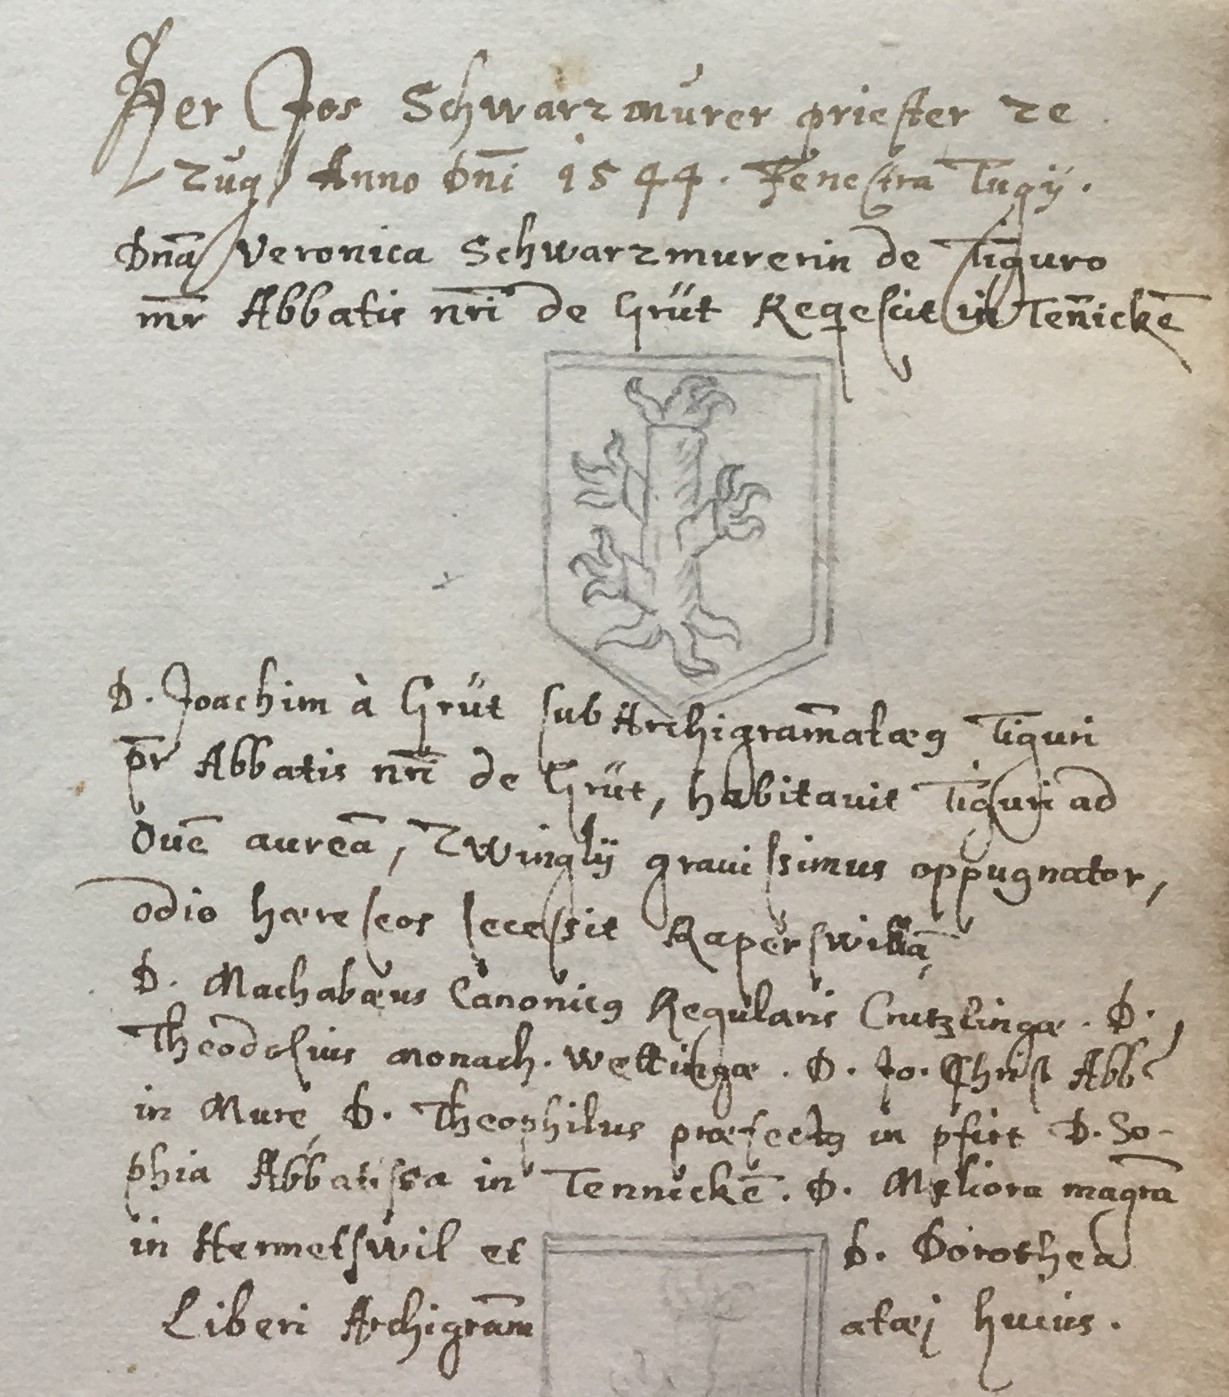 Her Jos Schwarzmůrer priester ze
Zug Anno Dn̄i 1544. Fenestra Tugij.
Dn̄a Veronica Schwarzmurerin de Tiguro
mr̄ Abbatis nr̄i de Grüt Reqescit in Ten̄ickē
D. Joachim à Grüt subArchigram̄atæꝯ Tiguri
pr̄ Abbatis nr̄i de Grüt, habitauit Tiguri ad
Ouē aureā, Zwinglij grauissimus oppugnator,
odio hæreseos secessit Raperswillā,
D. Machabæus Canonicꝯ Regularis Crutzlingæ. D.
Theodosius monach. Wettingæ. D. Jo. Christ Abb
in Mure, D. Theophilus præfectꝯ in pfirt D. So-
phia Abbatissa in Tennickē. D. Meliora magrā
in Hermetswil et D. Dorothea
Liberi Archigram̄ atæj huius.